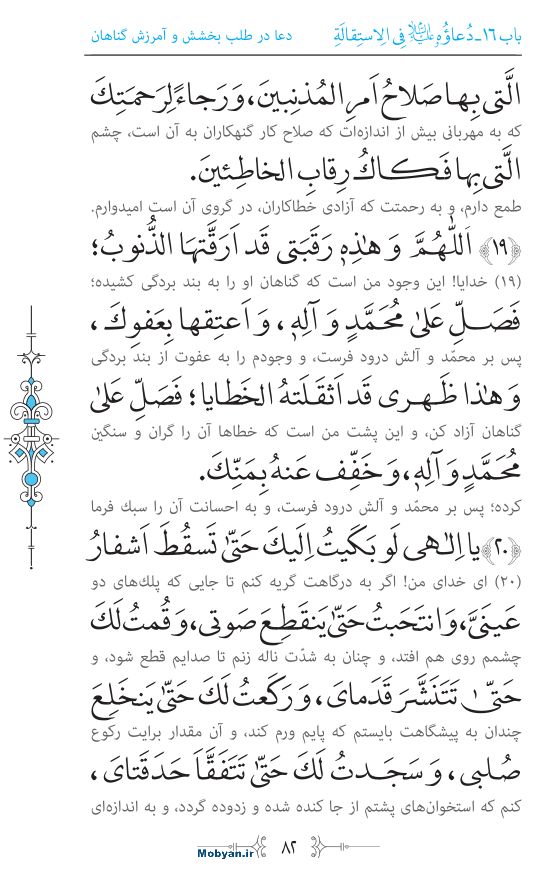 باب ۱۶ـ دُعاؤُهُ علیه‌السلام فِی الِاستِقالَةِ
دعا در طلب بخشش و آمرزش گناهان
الَّتی بِها صَلاحُ اَمرِ المُذنِبینَ، وَ رَجاءً لِرَحمَتِكَ
كه به مهربانی بیش از اندازه‌ات كه صلاح كار گنهكاران به آن است، چشم
الَّتی بِها فَكاكُ رِقابِ الخاطِئینَ.
طمع دارم، و به رحمتت كه آزادی خطاكاران، در گروی آن است امیدوارم.
﴿۱۹﴾ اَللّٰهُمَّ وَ هٰذِهٖ رَقَبَتی قَد اَرَقَّتهَا الذُّنوبُ؛
(۱۹) خدایا! این وجود من است كه گناهان او را به بند بردگی كشیده؛
فَصَلِّ عَلیٰ مُحَمَّدٍ وَ آلِهٖ، وَ اَعتِقها بِعَفوِكَ،
پس بر محمّد و آلش درود فرست، و وجودم را به عفوت از بند بردگی
وَ هٰذا ظَهری قَد اَثقَلَتهُ الخَطایا؛ فَصَلِّ عَلیٰ
گناهان آزاد كن، و این پشت من است كه خطاها آن را گران و سنگین
مُحَمَّدٍ وَ آلِهٖ، وَ خَفِّف عَنهُ بِمَنِّكَ.
كرده؛ پس بر محمّد و آلش درود فرست، و به احسانت آن را سبك فرما
﴿۲۰﴾ یا اِلٰهی لَو بَكَیتُ اِلَیكَ حَتّیٰ تَسقُطَ اَشفارُ
(۲۰) ای خدای من! اگر به درگاهت گریه كنم تا جایی كه پلك‌های دو
عَینَیَّ، وَ انتَحَبتُ حَتّیٰ یَنقَطِعَ صَوتی، وَ قُمتُ لَكَ
چشمم روی هم افتد، و چنان به شدّت ناله زنم تا صدایم قطع شود، و
حَتّیٰ تَتَنَشَّرَ قَدَمایَ، وَ رَكَعتُ لَكَ حَتّیٰ یَنخَلِعَ
چندان به پیشگاهت بایستم كه پایم ورم كند، و آن مقدار برایت ركوع
صُلبی، وَ سَجَدتُ لَكَ حَتّیٰ تَتَفَقَّاَ حَدَقَتایَ،
كنم كه استخوان‌های پشتم از جا كنده شده و زدوده گردد، و به اندازه‌ای
۸۲
Mobyan.ir